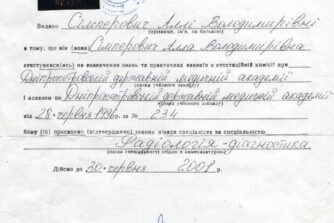 Видано Сімперович Аллі Володимирівні
(прізвище, ім'я, по батькові)
в тому, що він (вона) Сімперович Алла Володимирівна
атестувався(лась) на визначення знань та практичних навиків в атестаційній комісії при
Дніпропетровській державній медичній академії
(назва учбового закладу)
і наказом по Дніпропетровській державній медичній академії
(назва учбового закладу)
від 28 червня 1996 р. за № 234
йому (їй) присвоєно (підтверджено) звання лікаря-спеціаліста за спеціальністю
Радіологія-діагностика
(назва спеціальності згідно з номенклатурою)
Дійсно до 30 червня 2001 р.